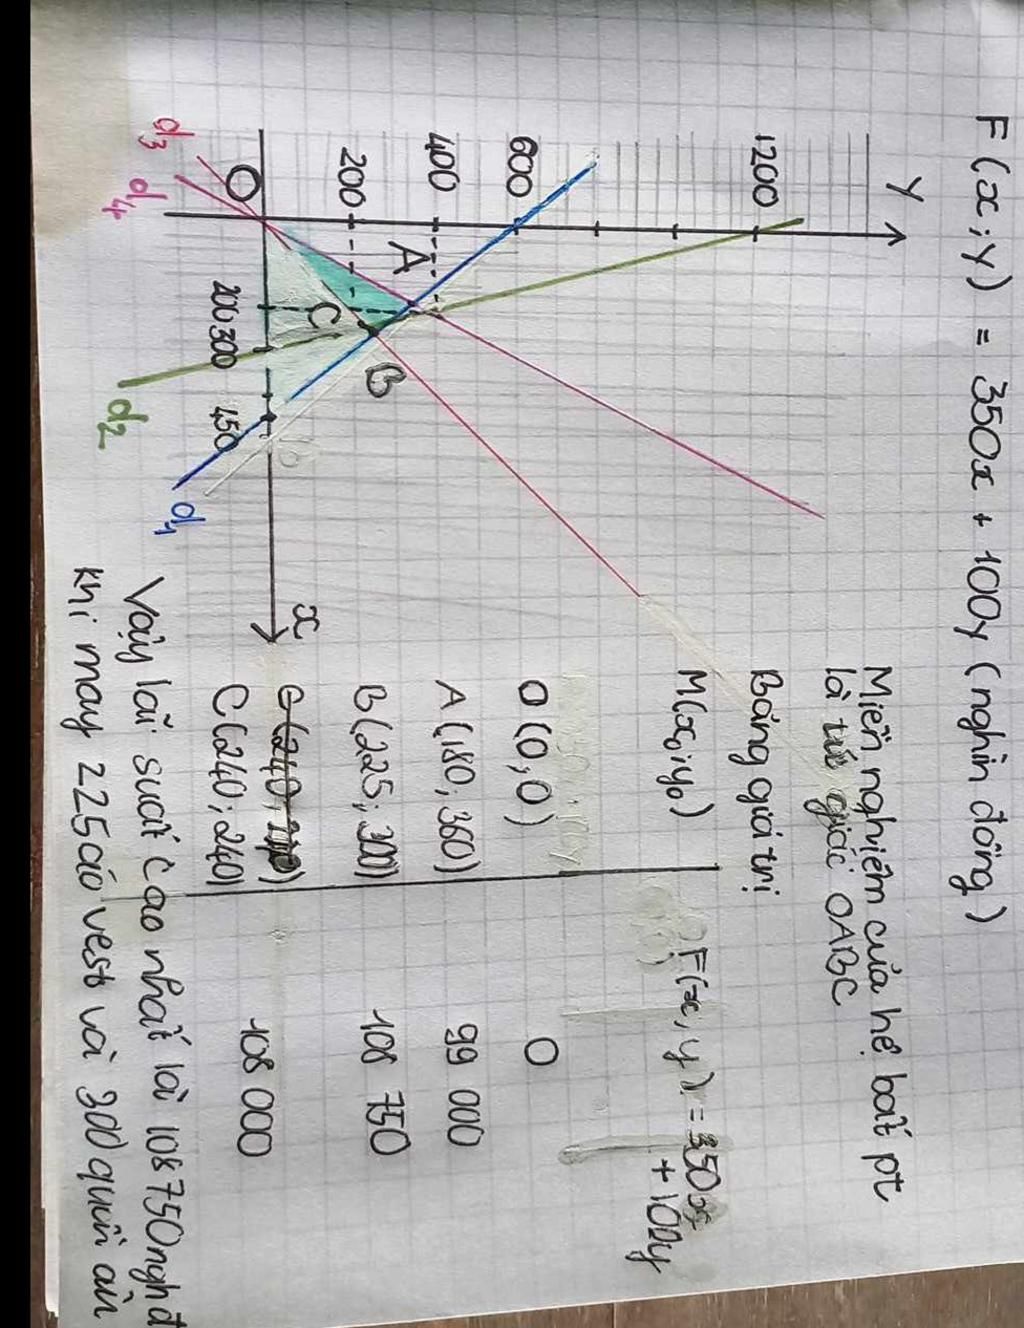 F(x; y) = 350x + 100y (nghìn đồng)
Y
1200
600
400
200
O
A
B
C
200 300
450
x
d3
d4
d2
d1
Miền nghiệm của hệ bất pt
là tứ giác OABC
Bảng giá trị
M(x0; y0)
F(x, y) = 350x
+ 100y
O (0, 0)
0
A (180; 360)
99 000
B (225; 300)
108 750
C (240; 240)
C (240; 240)
108 000
Vậy lãi suất cao nhất là 108 750 ngh đ
khi may 225 áo vest và 300 quần âu